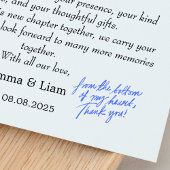 your presence, your kind
, and your thoughtful gifts.
s new chapter together, we carry your
look forward to many more memories
together.
With all our love,
mma & Liam
08.08.2025
from the bottom
of my heart,
Thank you!